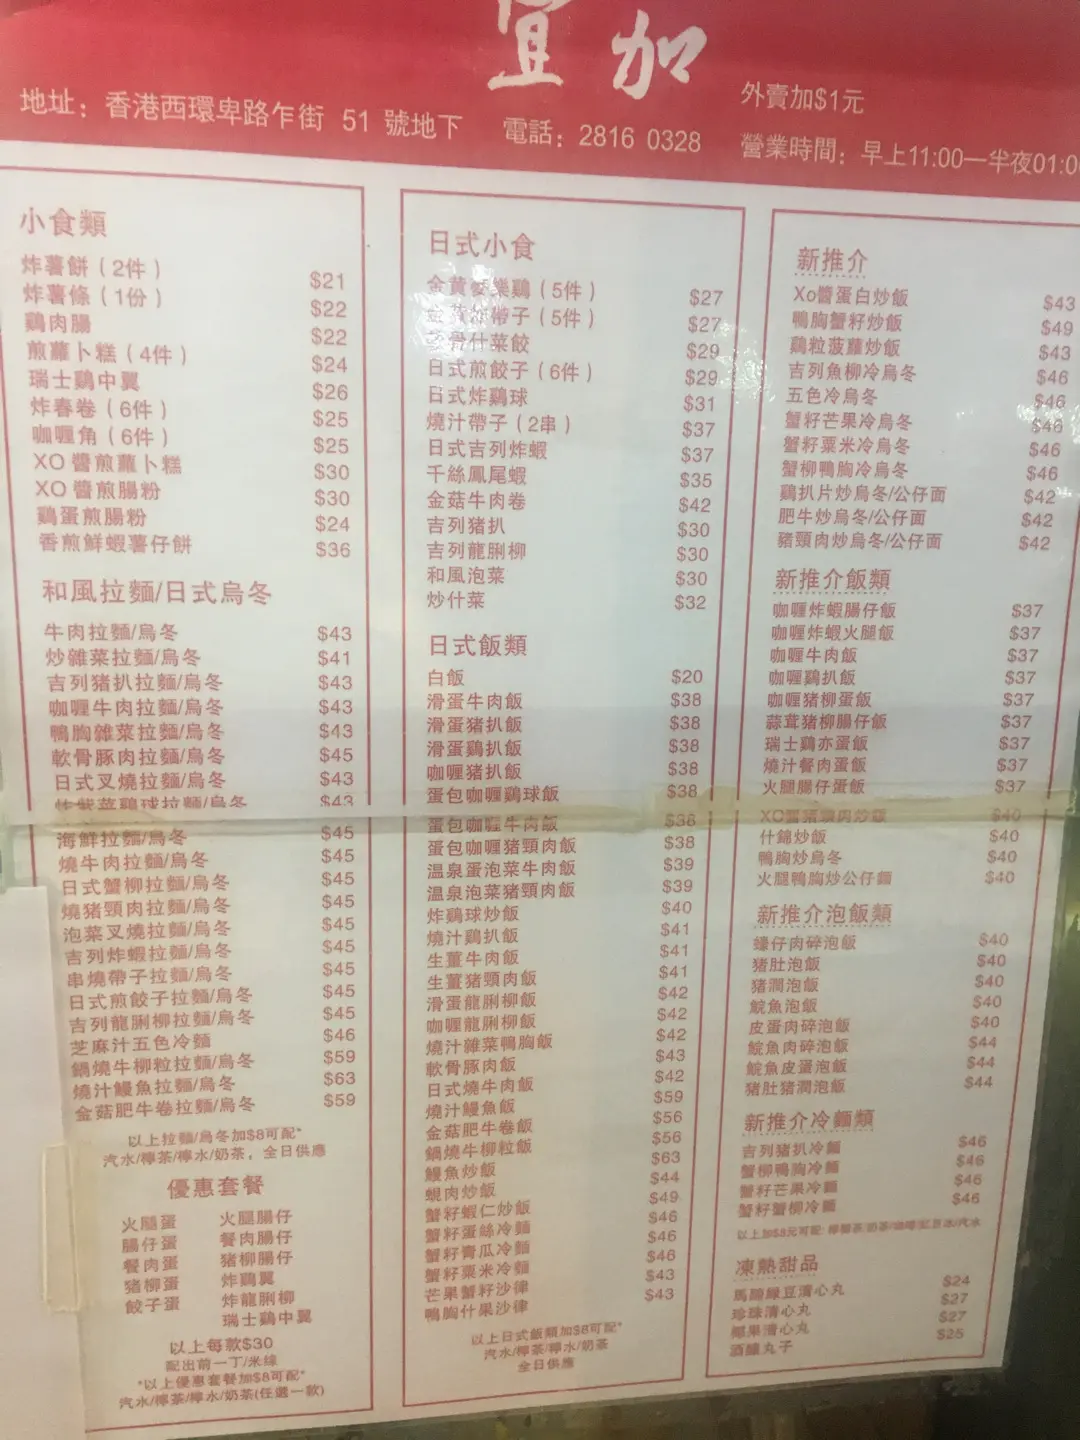 宜加
地址：香港西環卑路乍街 51 號地下
電話：2816 0328
外賣加$1元
營業時間：早上11:00—半夜01:0
小食類
炸薯餅（2件） $21
炸薯條（1份） $22
鷄肉腸 $22
煎蘿卜糕（4件） $24
瑞士鷄中翼 $26
炸春卷（6件） $25
咖喱角（6件） $25
XO 醬煎蘿卜糕 $30
XO 醬煎腸粉 $30
鷄蛋煎腸粉 $24
香煎鮮蝦薯仔餅 $36
和風拉麵/日式烏冬
牛肉拉麵/烏冬 $43
炒雜菜拉麵/烏冬 $41
吉列猪扒拉麵/烏冬 $43
咖喱牛肉拉麵/烏冬 $43
鴨胸雜菜拉麵/烏冬 $43
軟骨豚肉拉麵/烏冬 $45
日式叉燒拉麵/烏冬 $43
炸紫菜鷄球拉麵/烏冬 $43
海鮮拉麵/烏冬 $45
燒牛肉拉麵/烏冬 $45
日式蟹柳拉麵/烏冬 $45
燒猪頸肉拉麵/烏冬 $45
泡菜叉燒拉麵/烏冬 $45
吉列炸蝦拉麵/烏冬 $45
串燒帶子拉麵/烏冬 $45
日式煎餃子拉麵/烏冬 $45
吉列龍脷柳拉麵/烏冬 $45
芝麻汁五色冷麵 $46
鍋燒牛柳粒拉麵/烏冬 $59
燒汁鰻魚拉麵/烏冬 $63
金菇肥牛卷拉麵/烏冬 $59
以上拉麵/烏冬加$8可配*
汽水/檸茶/檸水/奶茶，全日供應
優惠套餐
火腿蛋 火腿腸仔
腸仔蛋 餐肉腸仔
餐肉蛋 猪柳腸仔
猪柳蛋 炸鷄翼
餃子蛋 炸龍脷柳
瑞士鷄中翼
以上每款$30
配出前一丁/米線
*以上優惠套餐加$8可配*
汽水/檸茶/檸水/奶茶(任選一款)
日式小食
金黄 樂鷄（5件） $27
帶子（5件） $27
骨什菜餃 $29
日式煎餃子（6件） $29
日式炸鷄球 $31
燒汁帶子（2串） $37
日式吉列炸蝦 $37
千絲鳳尾蝦 $35
金菇牛肉卷 $42
吉列猪扒 $30
吉列龍脷柳 $30
和風泡菜 $30
炒什菜 $32
日式飯類
白飯 $20
滑蛋牛肉飯 $38
滑蛋猪扒飯 $38
滑蛋鷄扒飯 $38
咖喱猪扒飯 $38
蛋包咖喱鷄球飯 $38
蛋包咖喱牛肉飯 $38
蛋包咖喱猪頸肉飯 $38
温泉蛋泡菜牛肉飯 $39
温泉泡菜猪頸肉飯 $39
炸鷄球炒飯 $40
燒汁鷄扒飯 $41
生薑牛肉飯 $41
生薑猪頸肉飯 $41
滑蛋龍脷柳飯 $42
咖喱龍脷柳飯 $42
燒汁雜菜鴨胸飯 $42
軟骨豚肉飯 $43
日式燒牛肉飯 $42
燒汁鰻魚飯 $59
金菇肥牛卷飯 $56
鍋燒牛柳粒飯 $56
鰻魚炒飯 $63
蜆肉炒飯 $44
蟹籽蝦仁炒飯 $49
蟹籽蛋絲冷麵 $46
蟹籽青瓜冷麵 $46
蟹籽粟米冷麵 $46
芒果蟹籽沙律 $43
鴨胸什果沙律 $43
以上日式飯類加$8可配*
汽水/檸茶/檸水/奶茶
全日供應
新推介
Xo醬蛋白炒飯 $43
鴨胸蟹籽炒飯 $49
鷄粒菠蘿炒飯 $43
吉列魚柳冷烏冬 $46
五色冷烏冬 $46
蟹籽芒果冷烏冬 $46
蟹籽粟米冷烏冬 $46
蟹柳鴨胸冷烏冬 $46
鷄扒片炒烏冬/公仔面 $42
肥牛炒烏冬/公仔面 $42
猪頸肉炒烏冬/公仔面 $42
新推介飯類
咖喱炸蝦腸仔飯 $37
咖喱炸蝦火腿飯 $37
咖喱牛肉飯 $37
咖喱鷄扒飯 $37
咖喱猪柳蛋飯 $37
蒜茸猪柳腸仔飯 $37
瑞士鷄亦蛋飯 $37
燒汁餐肉蛋飯 $37
火腿腸仔蛋飯 $37
XO醬猪頸肉炒飯 $40
什錦炒飯 $40
鴨胸炒烏冬 $40
火腿鴨胸炒公仔麵 $40
新推介泡飯類
蠔仔肉碎泡飯 $40
猪肚泡飯 $40
猪潤泡飯 $40
鯇魚泡飯 $40
皮蛋肉碎泡飯 $40
鯇魚肉碎泡飯 $44
鯇魚皮蛋泡飯 $44
猪肚猪潤泡飯 $44
新推介冷麵類
吉列猪扒冷麵 $46
蟹柳鴨胸冷麵 $46
蟹籽芒果冷麵 $46
蟹籽蟹柳冷麵 $46
以上加$8元可配: 檸檬茶/奶茶/咖啡/紅豆冰/汽水
凍熱甜品
馬蹄綠豆清心丸 $24
珍珠清心丸 $27
椰果清心丸 $27
酒釀丸子 $25